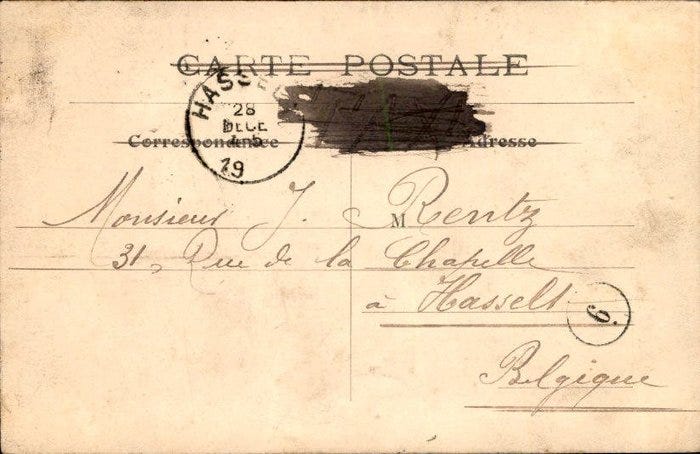 CARTE POSTALE
HASSELT
28
DECE
19
Correspondance Adresse
Monsieur J. Rentz
M
31, Rue de la Chapelle
à Hasselt
6
Belgique